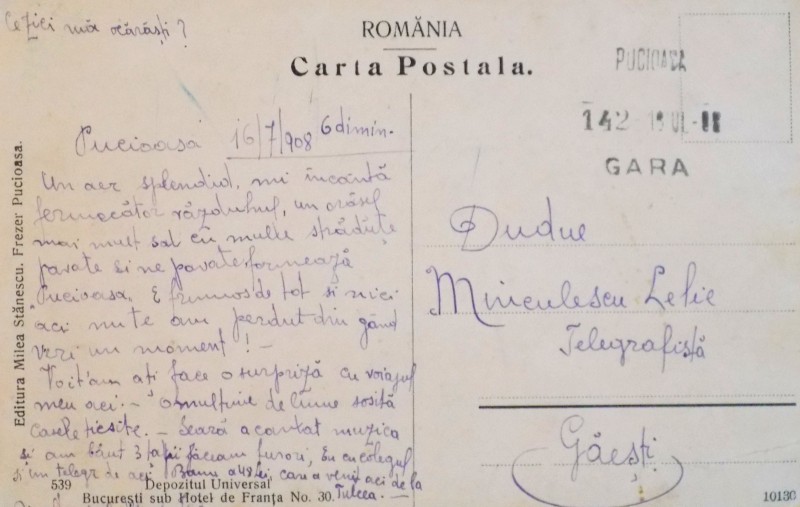 Ce zici mă ocărăști?
ROMÂNIA
Carta Postala.
PUCIOASA
142 18 IUL
GARA
Pucioasa 16/7/908 6 dimin.
Un aer splendid, mi încântă
fermecător văzduhul, un orășel
mai mult sat cu multe străduțe
pavate si ne pavate formează
Pucioasa. E frumos de tot si nici
aci nu te am perdut din gând
vr'un moment! —
Voit'am ați face o surpriză cu voiajul
meu aci. — O mulțime de lume sosită
casele ticsite. — Seară a cantat muzica
si am băut 3 țapi făceam furori, Eu cu colegul
si un telegr de aci Banu a 48 lei, care a venit aci de la
Tulcea. —
Dudue
Miniculescu Lelie
Telegrafistă
Găești
Editura Milea Stănescu. Frezer Pucioasa.
539 Depozitul Universal
Bucuresti sub Hotel de Franța No. 30.
10130